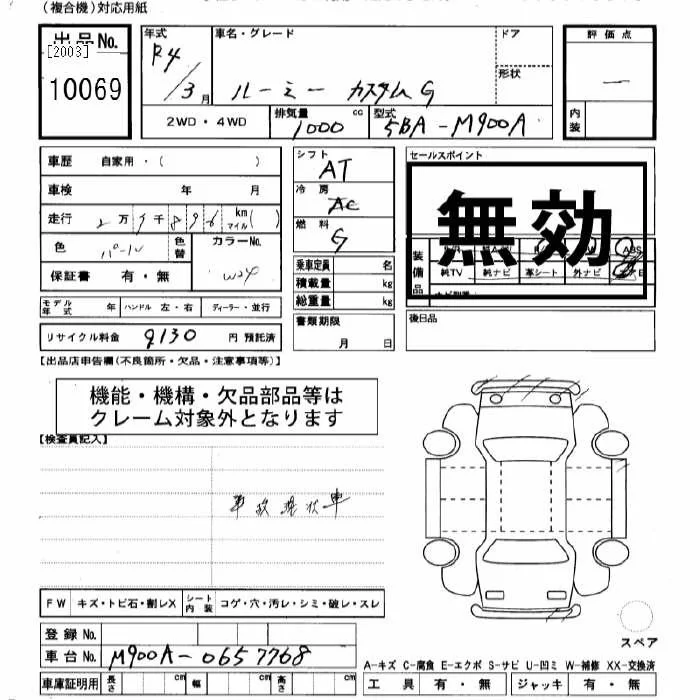 (複合機)対応用紙
出品No.
[2003]
10069
年式
R4
/3月
車名・グレード
ルーミー カスタムG
ドア
形状
評価点
内装
2WD・4WD
排気量
1000 cc
型式
5BA-M900A
車歴 自家用・( )
車検 年 月
走行 万 千 8 9 6 km マイル ( )
色 パール
色替
カラーNo.
W24
保証書 有・無
シフト
AT
冷房
AC
燃料
G
乗車定員 名
積載量 kg
総重量 kg
書類期限
月 日
セールスポイント
無効
装備品
ABS
純TV 純ナビ 革シート 外ナビ
後日品
モデル年式 年 ハンドル 左・右 ディーラー・並行
リサイクル料金 9130 円 預託済
【出品店申告欄(不良箇所・欠品・注意事項等)】
機能・機構・欠品部品等は
クレーム対象外となります
【検査員記入】
事故現状車
FW キズ・トビ石・割レX シート内装 コゲ・穴・汚レ・シミ・破レ・スレ
登録No.
車台No. M900A-0657768
車庫証明用 長さ cm 幅 cm 高さ cm
スペア
A-キズ C-腐食 E-エクボ S-サビ U-凹ミ W-補修 XX-交換済
工具 有・無 ジャッキ 有・無